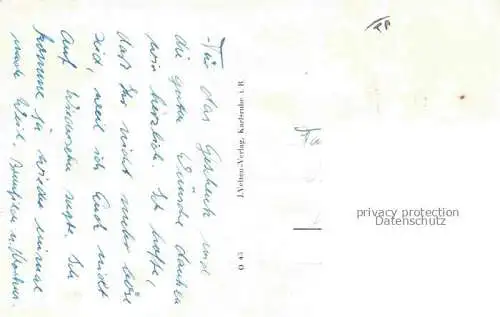 Für das Geschenk und
die guten Wünsche danken
wir herzlich. Ich hoffe,
daß Ihr nicht mehr böse
seid, weil ich Euch nicht
Auf Wiedersehn sagte. Ich
komme ja wieder einmal
nach
J. Velten-Verlag, Karlsruhe i. B.
O 45
Fa
privacy protection
Datenschutz